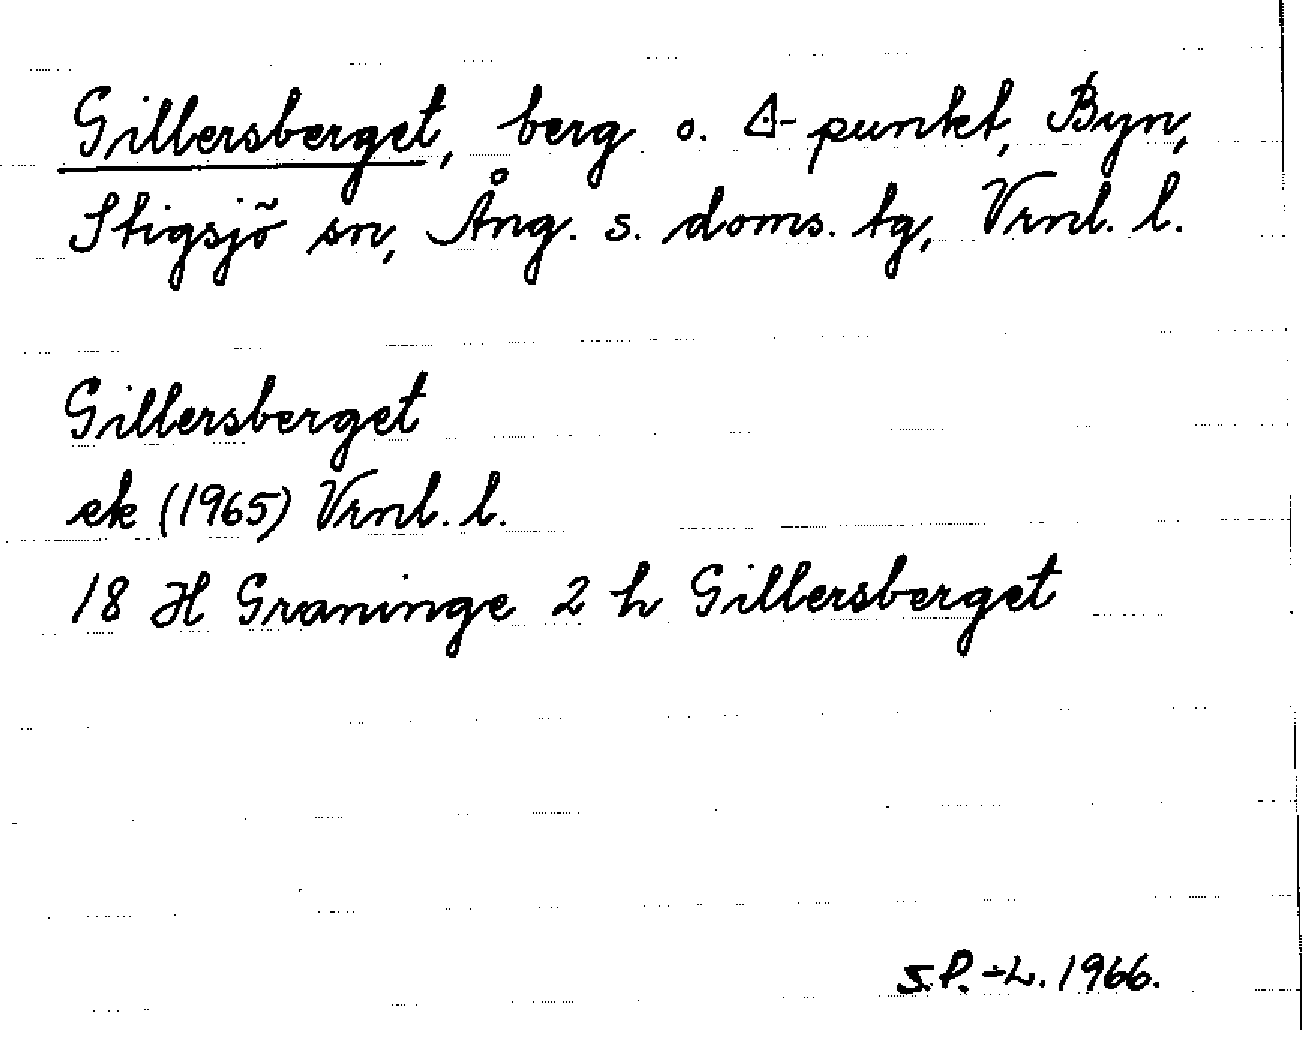 Gillersberget, berg o. △-punkt, Byn,
Stigsjö sn, Ång. s. doms. tg, Vrnl. l.
Gillersberget
ek (1965) Vrnl. l.
18 H Graninge 2 h Gillersberget
S.P.-L. 1966.